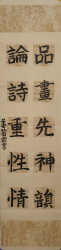 品畫先神韻
論詩重性情